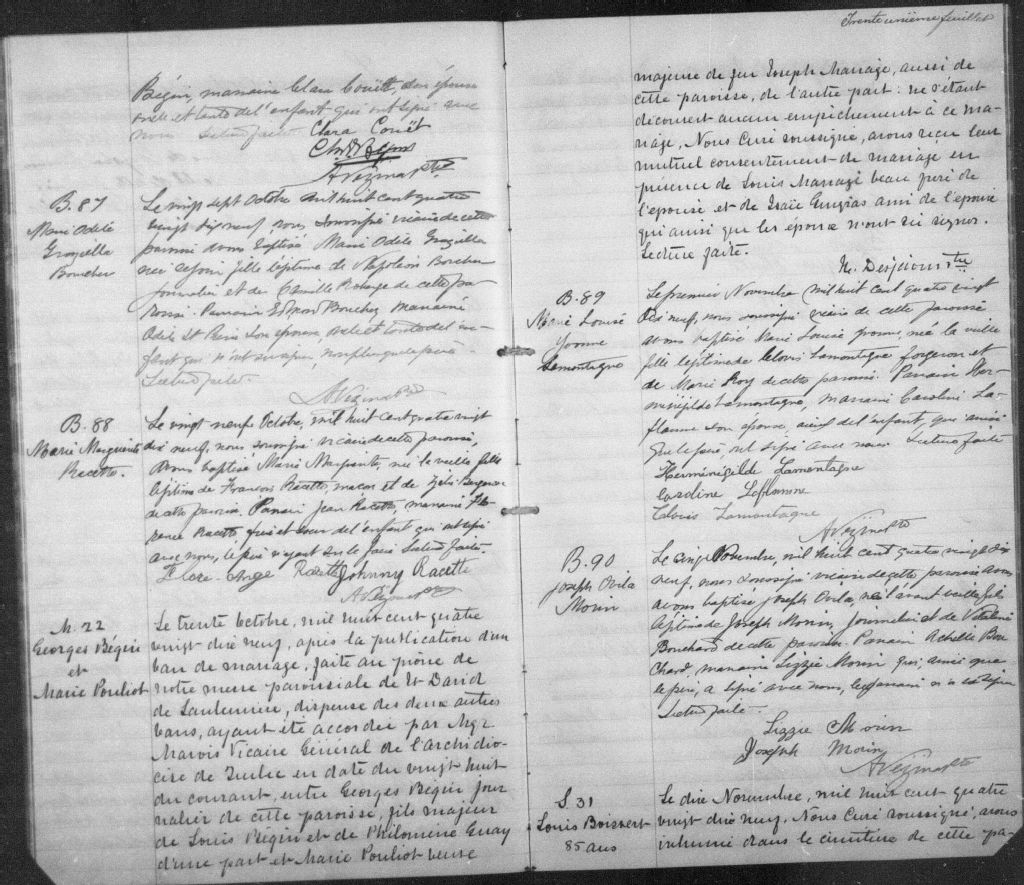 Bégin, marraine Clara Couët, son épouse
oncle et tante de l'enfant qui ont signé avec
nous. Lecture faite. Clara Couët
Chs Bégin
A Vézina Ptr
B. 87
Marie Odile
Graziella
Boucher
Le vingt sept Octobre mil huit cent quatre
vingt dix neuf, nous soussigné vicaire de cette
paroisse avons baptisé Marie Odile Graziella
née ce jour fille légitime de Napoléon Boucher
journalier et de Camille Roberge de cette pa-
roisse. Parrain Edmond Boucher marraine
Odile St son épouse, oncle et tante de l'en-
fant qui n'ont su signer, non plus que le père.
Lecture faite.
A Vézina Ptr
B. 88
Marie Marguerite
Racette.
Le vingt neuf Octobre, mil huit cent quatre vingt
dix neuf, nous soussigné vicaire de cette paroisse,
avons baptisé Marie Marguerite, née la veille fille
légitime de François Racette, maçon et de Bergeron
de cette paroisse. Parrain Jean Racette, marraine Flo-
rence Racette, frère et sœur de l'enfant qui ont signé
avec nous, le père n'ayant su le faire. Lecture faite.
Ange Racette Johnny Racette
A Vézina Ptr
M. 22
Georges Bégin
et
Marie Pouliot
Le trente Octobre, mil huit cent quatre
vingt dix neuf, après la publication d'un
ban de mariage, faite au prône de
notre messe paroissiale de St David
de Lauberivière, dispense des deux autres
bans, ayant été accordée par Mgr
Marois Vicaire Général de l'archidio-
cèse de Québec en date du vingt huit
du courant, entre Georges Bégin jour
nalier de cette paroisse, fils majeur
de Louis Bégin et de Philomène Guay
d'une part et Marie Pouliot veuve
Trente unième feuillet
majeure de feu Joseph Mariage, aussi de
cette paroisse, de l'autre part: ne s'étant
découvert aucun empêchement à ce ma-
riage, Nous Curé soussigné, avons reçu leur
mutuel consentement de mariage en
présence de Louis Mariage beau père de
l'épouse et de Isaïe ami de l'épouse
qui ainsi que les époux n'ont su signer.
Lecture faite.
N. Desjardins Ptre
B. 89
Marie Louise
Yvonne
Lamontagne
Le premier Novembre mil huit cent quatre vingt
dix neuf, nous soussigné vicaire de cette paroisse
avons baptisé Marie Louise Yvonne, née la veille
fille légitime de Clovis Lamontagne forgeron et
de Marie Roy de cette paroisse. Parrain Her-
ménégilde Lamontagne, marraine Caroline La-
flamme son épouse, aïeuls de l'enfant, qui ainsi
que le père, ont signé avec nous Lecture faite
Herménégilde Lamontagne
Caroline Laflamme
Clovis Lamontagne
A Vézina Ptr
B. 90
Joseph Ovila
Morin
Le cinq Novembre, mil huit cent quatre vingt dix
neuf, nous soussigné vicaire de cette paroisse avons
avons baptisé Joseph Ovila, né l'avant veille fils
légitime de Joseph Morin, journalier et de Vitaline
Bouchard de cette paroisse. Parrain Achille Bou
chard, marraine Lizzie Morin qui, ainsi que
le père, a signé avec nous, le parrain n'a su signer
Lecture faite.
Lizzie Morin
Joseph Morin
A Vézina Ptr
S 31
Louis Boisvert
85 ans
Le dix Novembre, mil huit cent quatre
vingt dix neuf, Nous Curé soussigné, avons
inhumé dans le cimetière de cette pa-